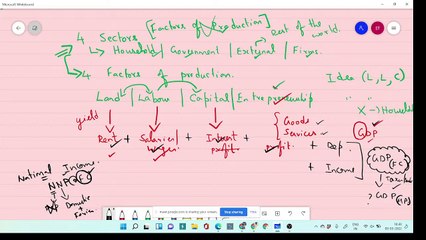 Microsoft Whiteboard
[Factors of Production]
4 Sectors
Rest of the world.
Household | Government | External | Firms.
4 Factors of production.
Idea (L, L, C)
Land | Labour | Capital | Entrepreneurship
X → Household
yield
Goods
Services
GDP
Rent + Salaries/ + Interest + profit + Dep
wages profit
+ Income
National Income
NNP FC
GDP FC
GDP MP
Domestic
+
Stop sharing